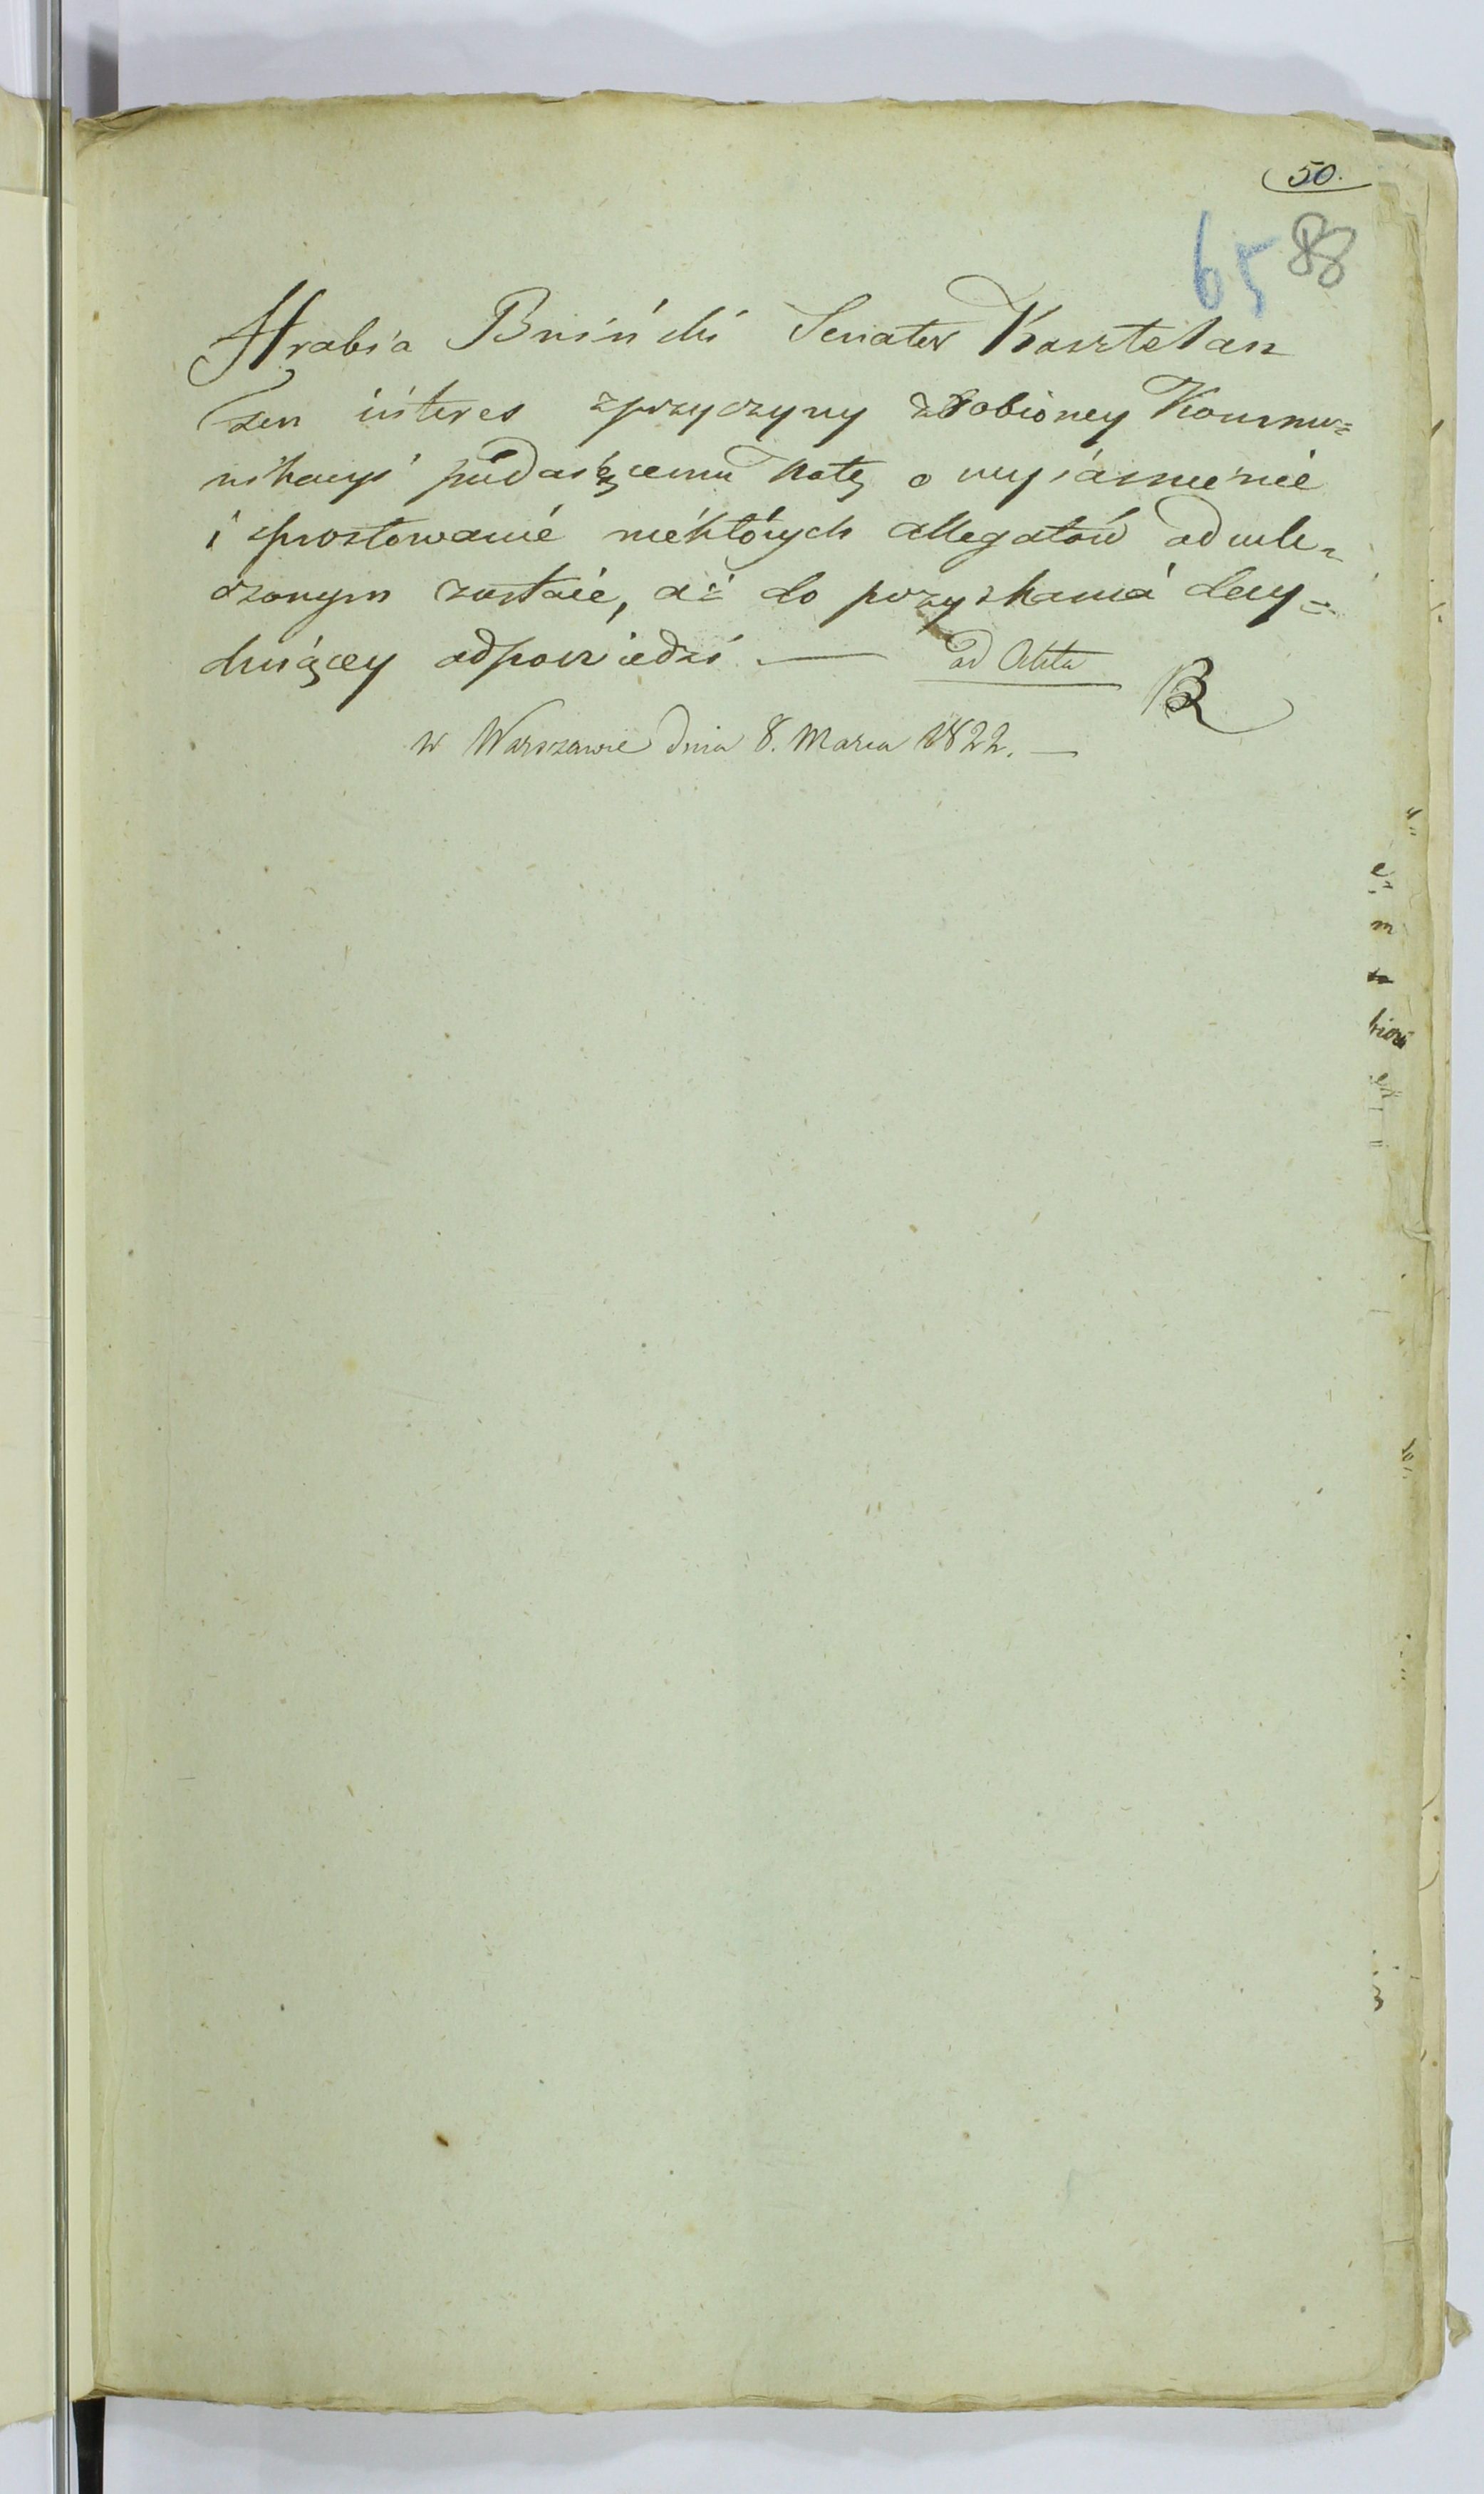 50.
65 88
Hrabia Bniński Senator Kasztelan
Ten interes zprzyczyny zrobioney Kommu=
nikacyi podaiącemu Notę o wyiasnienie
i sprostowanie niektórych allegatów odwle=
czonym zostaie, aż do pozyskania decy=
duiącey odpowiedzi. — ad Acta
B
w Warszawie dnia 8. Marca 1822. —